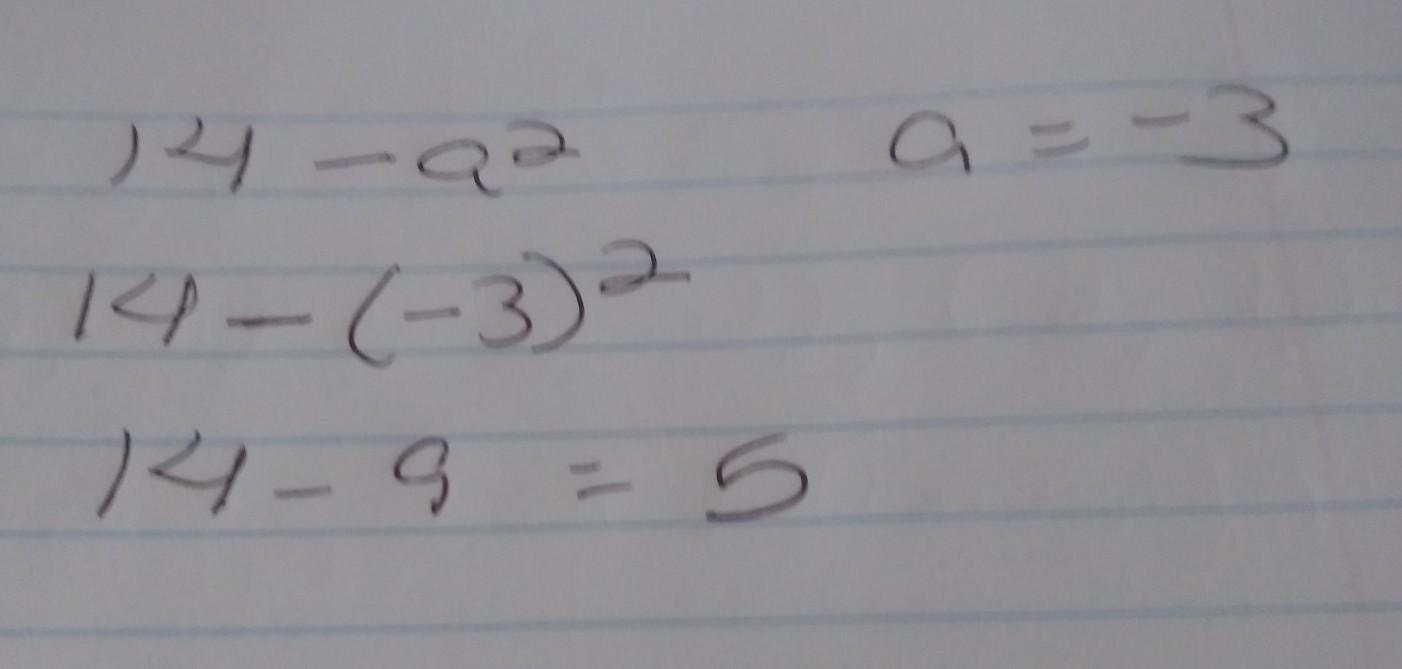 14 - a² a = -3
14 - (-3)²
14 - 9 = 5